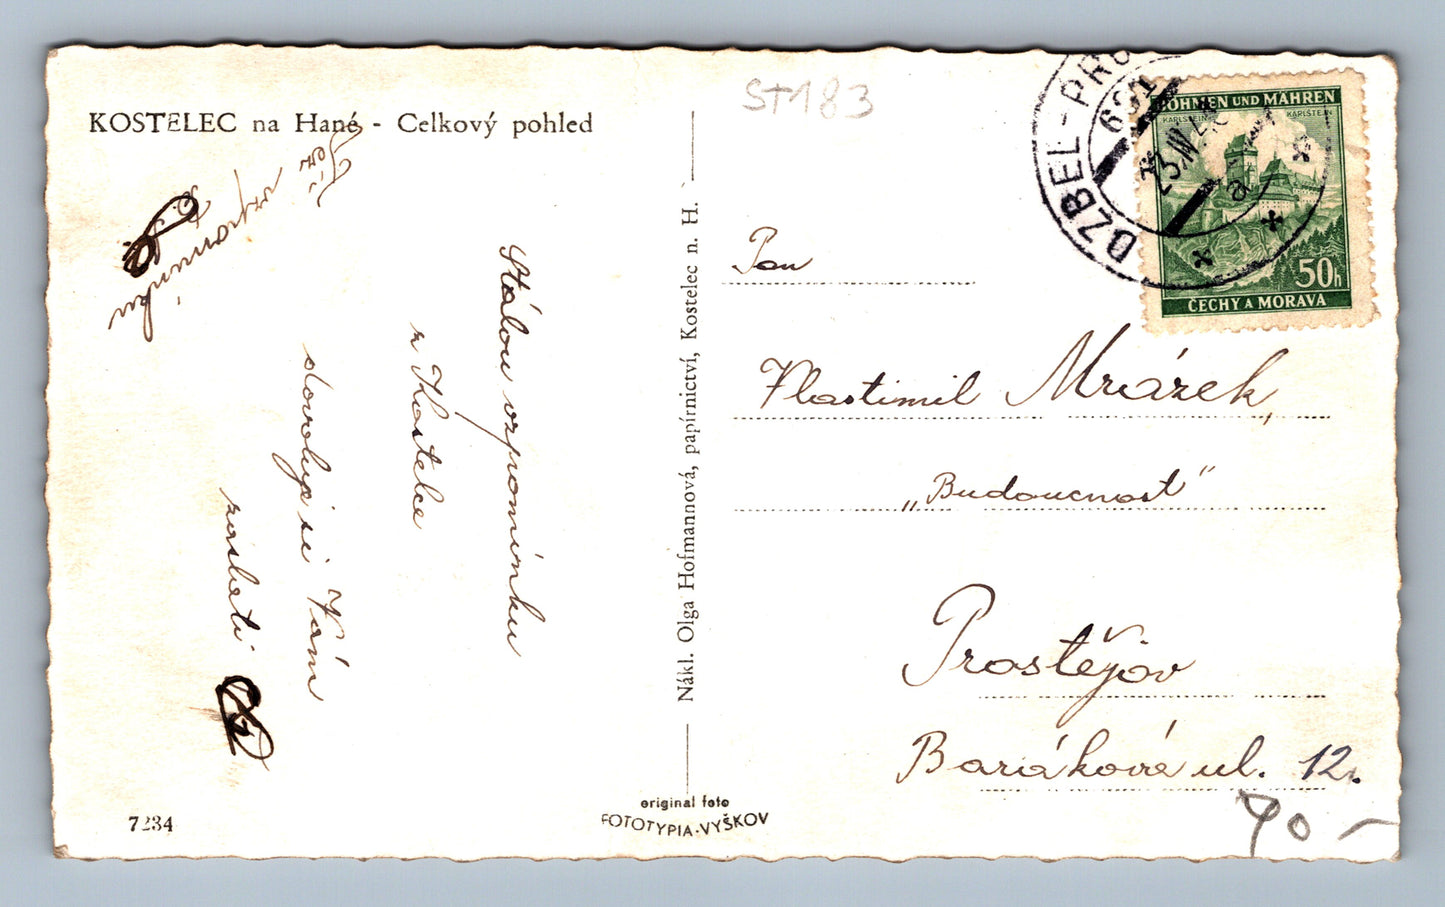 KOSTELEC na Hané - Celkový pohled
ST183
Též
vzpomínku
Stálou vzpomínku
z Kostelce
dovoluji si Vám
zaslati
7234
Nákl. Olga Hofmannová, papírnictví, Kostelec n. H.
original foto
FOTOTYPIA-VYŠKOV
DZBEL-PRO
23.IV.4
a
BÖHMEN UND MÄHREN
KARLSTEIN KARLŠTEJN
50h
ČECHY A MORAVA
Pan
Vlastimil Mrázek,
„Budoucnost"
Prostějov
Barákova ul. 12.
90 -